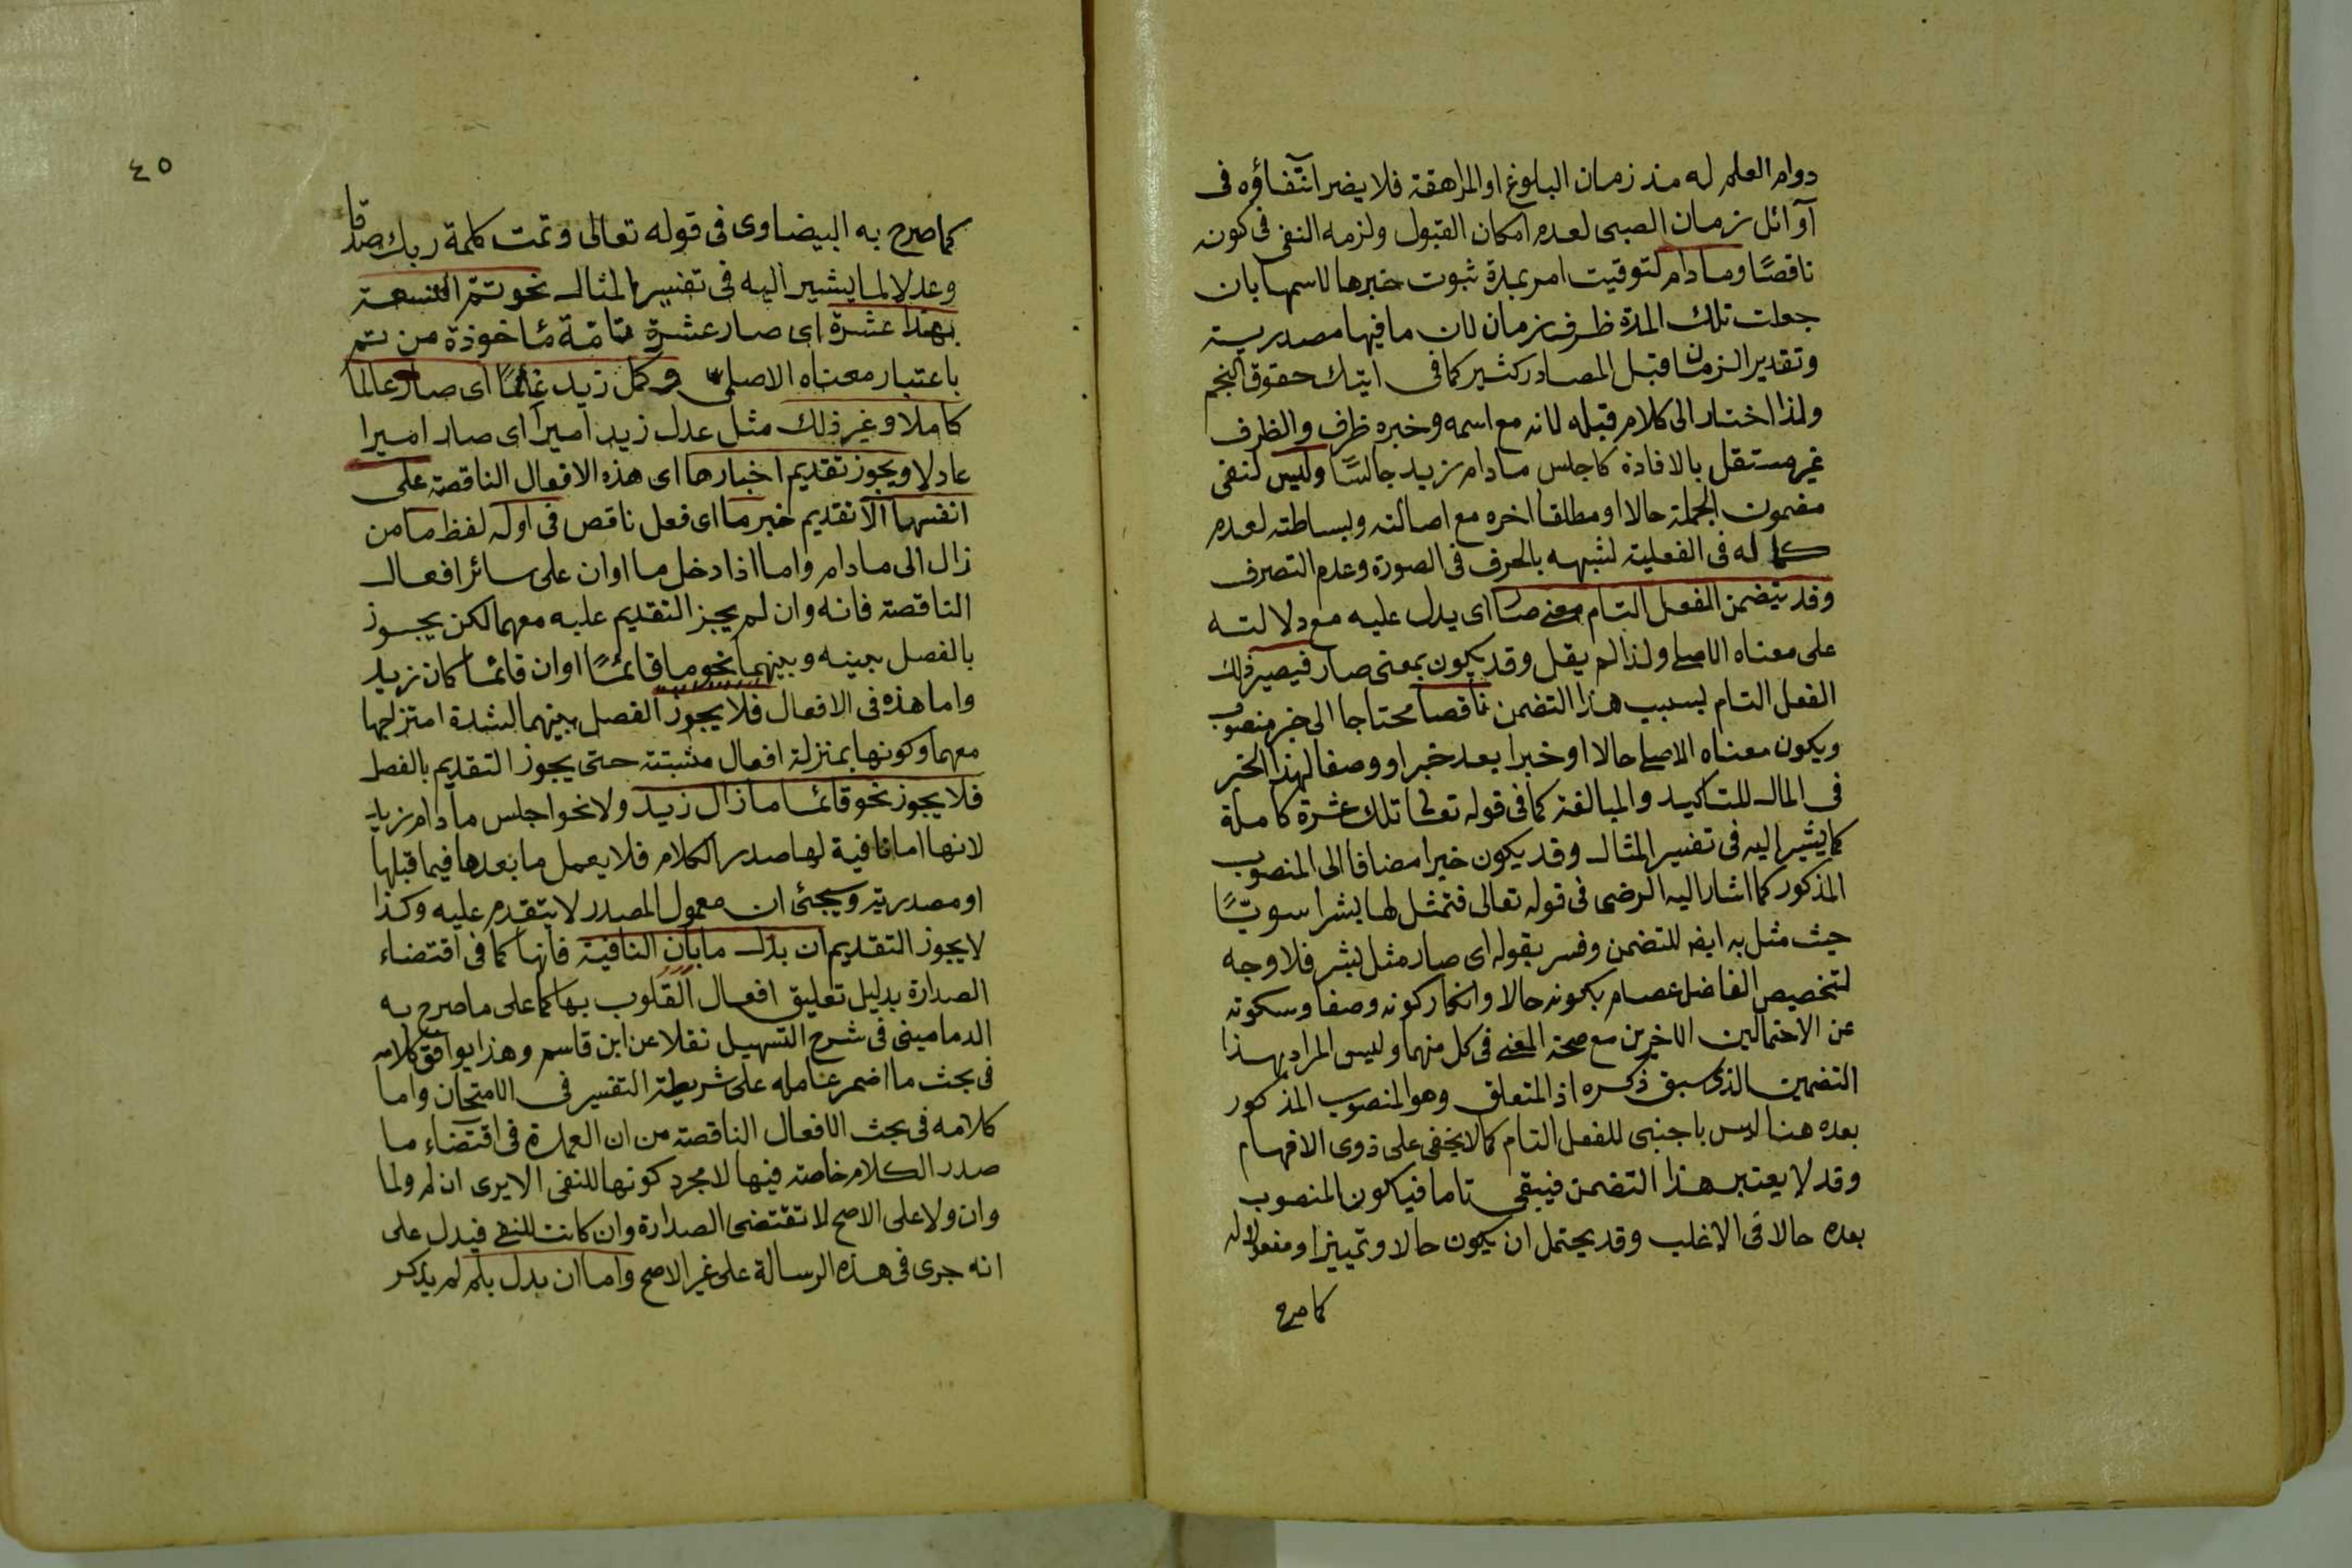 دوام العلم له منذ زمان البلوغ او المراهقة فلا يضر انتفاؤه فى
آوائل زمان الصبى لعدم امكان القبول ولزمه النفى فى كونه
ناقصًا وما دام لتوقيت امر بمدة ثبوت خبرها لاسمها بان
جعلت تلك المدة ظرف زمان لان ما فيها مصدرية
وتقدير الزمان قبل المصادر كثير كما فى اتيتك حقوق النجم
ولذا احتار الى كلام قبله لانه مع اسمه وخبره ظرف والظرف
غير مستقل بالافادة كاجلس ما دام زيد جالسًا وليس لنفى
مضمون الجملة حالا او مطلقا اخره مع اصالته وبساطته لعدم
كماله فى الفعلية لشبهه بالحرف فى الصورة وعدم التصرف
وقد يتضمن الفعل التام معنى صار اى يدل عليه مع دلالته
على معناه الاصلى ولذا لم يقل وقد يكون بمعنى صار فيصير ذلك
الفعل التام بسبب هذا التضمن ناقصا محتاجا الى خبر منصوب
ويكون معناه الاصلى حالا او خبرا بعد خبر او وصفا لهذا الخبر
فى المال للتاكيد والمبالغة كما فى قوله تعالى تلك عشرة كاملة
كما يشير اليه فى تفسير المثال وقد يكون خبرا مضافا الى المنصوب
المذكور كما اشار اليه الرضى فى قوله تعالى فتمثل لها بشرا سويًّا
حيث مثل به ايضا للتضمن وفسر بقوله اى صار مثل بشر فلا وجه
لتخصيص الفاضل عصام بكونه حالا وانكار كونه وصفا وسكوته
عن الاحتمالين الاخيرين مع صحة المعنى فى كل منهما وليس المراد بهذا
التضمين الذى سبق ذكره اذ المتعلق وهو المنصوب المذكور
بعده هنا ليس باجنبى للفعل التام كما لا يخفى على ذوى الافهام
وقد لا يعتبر هذا التضمن فيبقى تاما فيكون المنصوب
بعده حالا فى الاغلب وقد يحتمل ان يكون حالا وتمييزا ومفعولا له
كما صرح
٤٥
كما صرح به البيضاوى فى قوله تعالى وتمت كلمة ربك صدقا
وعدلا لما يشير اليه فى تفسير المثال نحو تتمّ التسعة
بهذا عشرة اى صار عشرة تامّة مأخوذة من تتم
باعتبار معناه الاصلى وكمل زيد عالمًا اى صار عالما
كاملا وغير ذلك مثل عدل زيد اميرا اى صار اميرا
عادلا ويجوز تقديم اخبارها اى هذه الافعال الناقصة على
انفسها الا تقديم خبر ما اى فعل ناقص فى اوله لفظ ما من
زال الى ما دام واما اذا دخل ما اوان على سائر افعال
الناقصة فانه وان لم يجز التقديم عليه معهما لكن يجوز
بالفصل بينه وبينهما نحو ما قائمًا اوان قائما كان زيد
واما هذه فى الافعال فلا يجوز الفصل بينهما لشدة امتزاجها
معهما وكونها بمنزلة افعال مثبتة حتى يجوز التقديم بالفصل
فلا يجوز نحو قائما ما زال زيد ولا نحو اجلس ما دام زيد
لانها اما نافية لها صدر الكلام فلا يعمل ما بعدها فيما قبلها
او مصدرية وسيجئ ان معمول المصدر لا يتقدم عليه وكذا
لا يجوز التقديم ان بدل ما بان النافية فانها كما فى اقتضاء
الصدارة بدليل تعليق افعال القلوب بها كما على ما صرح به
الدمامينى فى شرح التسهيل نقلا عن ابن قاسم وهذا يوافق كلامه
فى بحث ما اضمر عامله على شريطة التفسير فى الامتحان واما
كلامه فى بحث الافعال الناقصة من ان العمدة فى اقتضاء ما
صدر الكلام خاصة فيها لا مجرد كونها للنفى الا يرى ان لم ولما
وان ولا على الاصح لا تقتضى الصدارة وان كانت للنفى فيدل على
انه جرى فى هذه الرسالة على غير الاصح واما ان بدل بلم لم يذكر